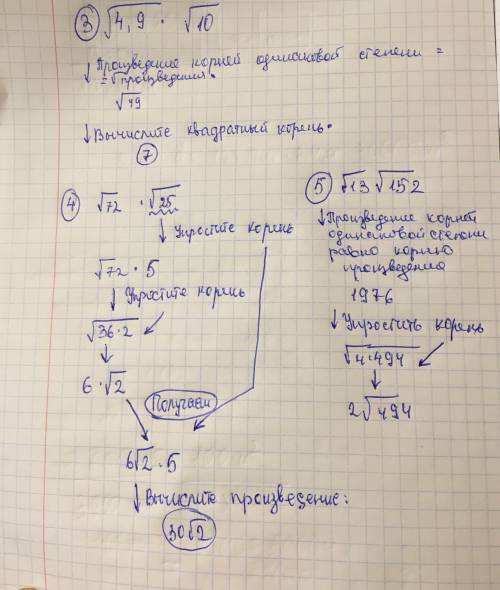 ③ √4,9 · √10
↓ Произведение корней одинаковой степени =
= √произведения.
√49
↓ Вычислите квадратный корень.
⑦
④ √72 · √25
↓ Упростите корень
√72 · 5
↓ Упростите корень
√36·2
↓
6·√2
Получаем
6√2 · 5
↓ Вычислите произведение:
30√2
⑤ √13 √152
↓ Произведение корней
одинаковой степени
равно корню
произведения
1976
↓ Упростить корень
√4·494
↓
2√494